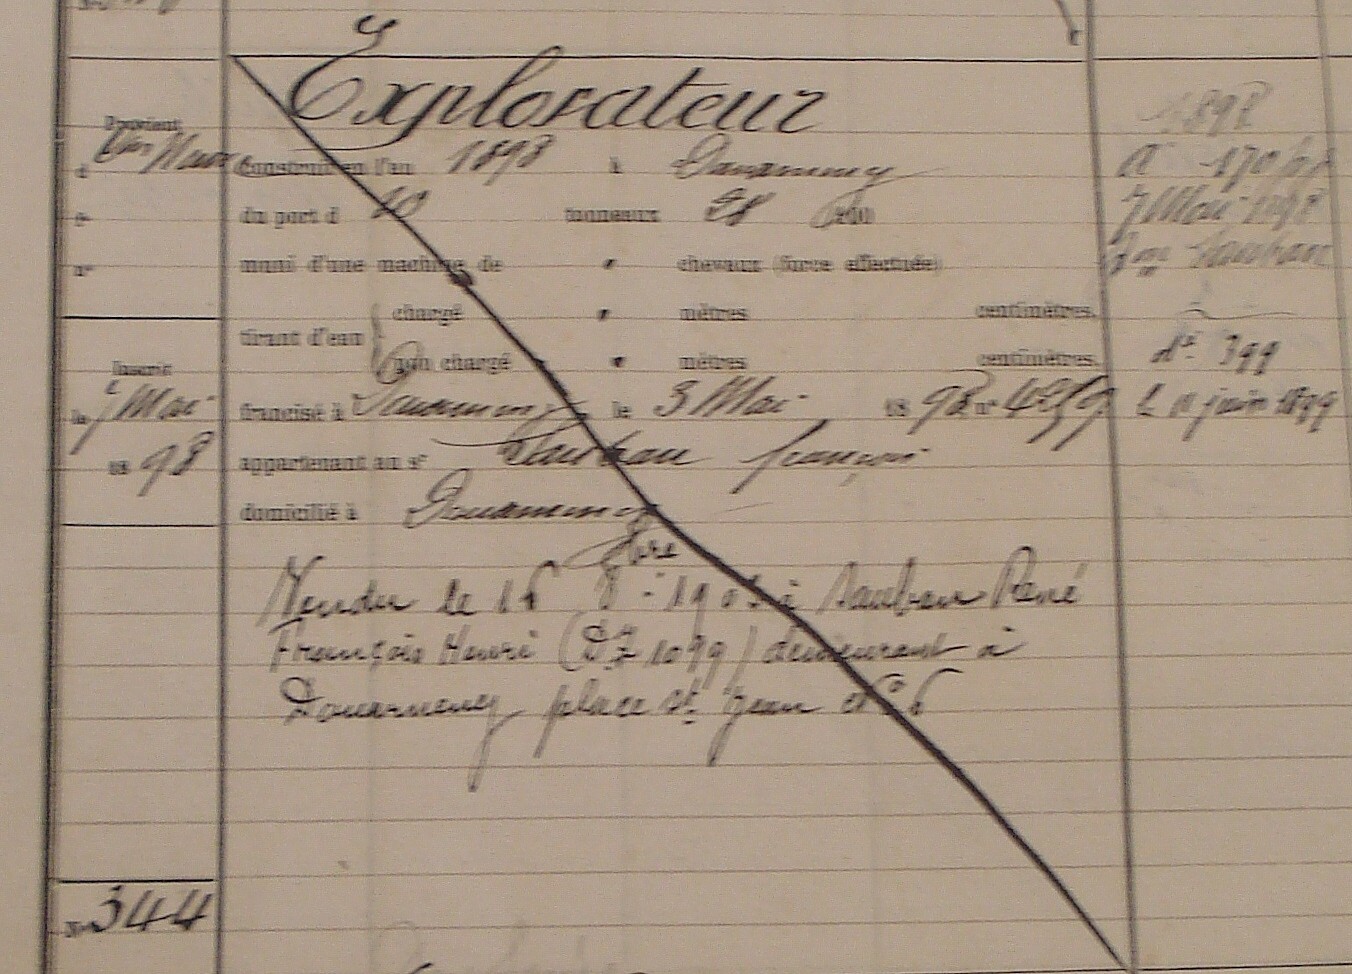 Explorateur
Provient
Construit en l'an 1898 à Douarnenez
du port d 10 tonneaux 28
muni d'une machine de " chevaux (force effectuée)
tirant d'eau { chargé " mètres centimètres.
non chargé " mètres centimètres.
Inscrit
le 7 Mai
18 98
francisé à Douarnenez le 3 Mai 18 98 n° 4959
appartenant au sr françois
domicilié à Douarnenez
Vendu le 16 8bre à René
François Henri (DZ 1099) demeurant à
Douarnenez place St Jean N° 6
1898
7 Mai 1898
d° 399
L 11 juin 1899
344